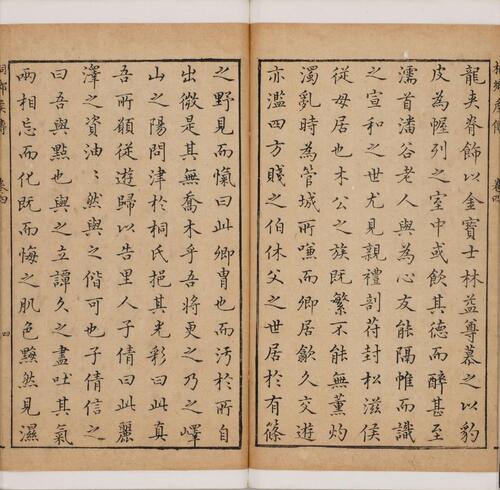 龍夾脊飾以金寶士林益尊慕之以豹
皮為幄列之室中或飲其德而醉甚至
濡首潘谷老人與為心友能隔帷而識
之宣和之世尤見親禮剖苻封松滋侯
従毋居也木公之族既繁不能無薰灼
濁亂時為管城所嗤而卿居歙久交遊
亦濫四方賤之伯休父之世居於有篠
之野見而愾曰此卿冑也而汚於所自
出微是其無喬木乎吾將更之乃之嶧
山之陽問津於桐氏挹其光彩曰此真
吾所願従遊歸以告里人子倩曰此麗
澤之資油〻然與之偕可也子倩信之
曰吾與點也與之立譚久之盡吐其氣
兩相忘而化既而悔之肌色黝然見濕
卷四
四